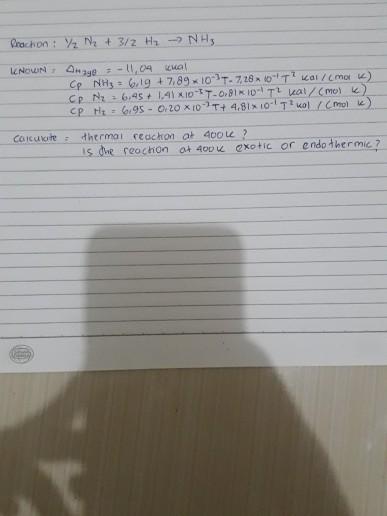 Reaction : ½ N₂ + 3/2 H₂ → NH₃
KNOWN : ΔH298 = -11,04 kkal
Cp NH₃ = 6,19 + 7,89 × 10⁻³ T - 7,28 × 10⁻¹ T² kal / (mol K)
Cp N₂ = 6,45 + 1,41 × 10⁻³ T - 0,81 × 10⁻¹ T² kal / (mol K)
Cp H₂ = 6,95 - 0,20 × 10⁻³ T + 4,81 × 10⁻¹ T² kal / (mol K)
Calculate : thermal reaction at 400K ?
Is the reaction at 400K exotic or endothermic ?